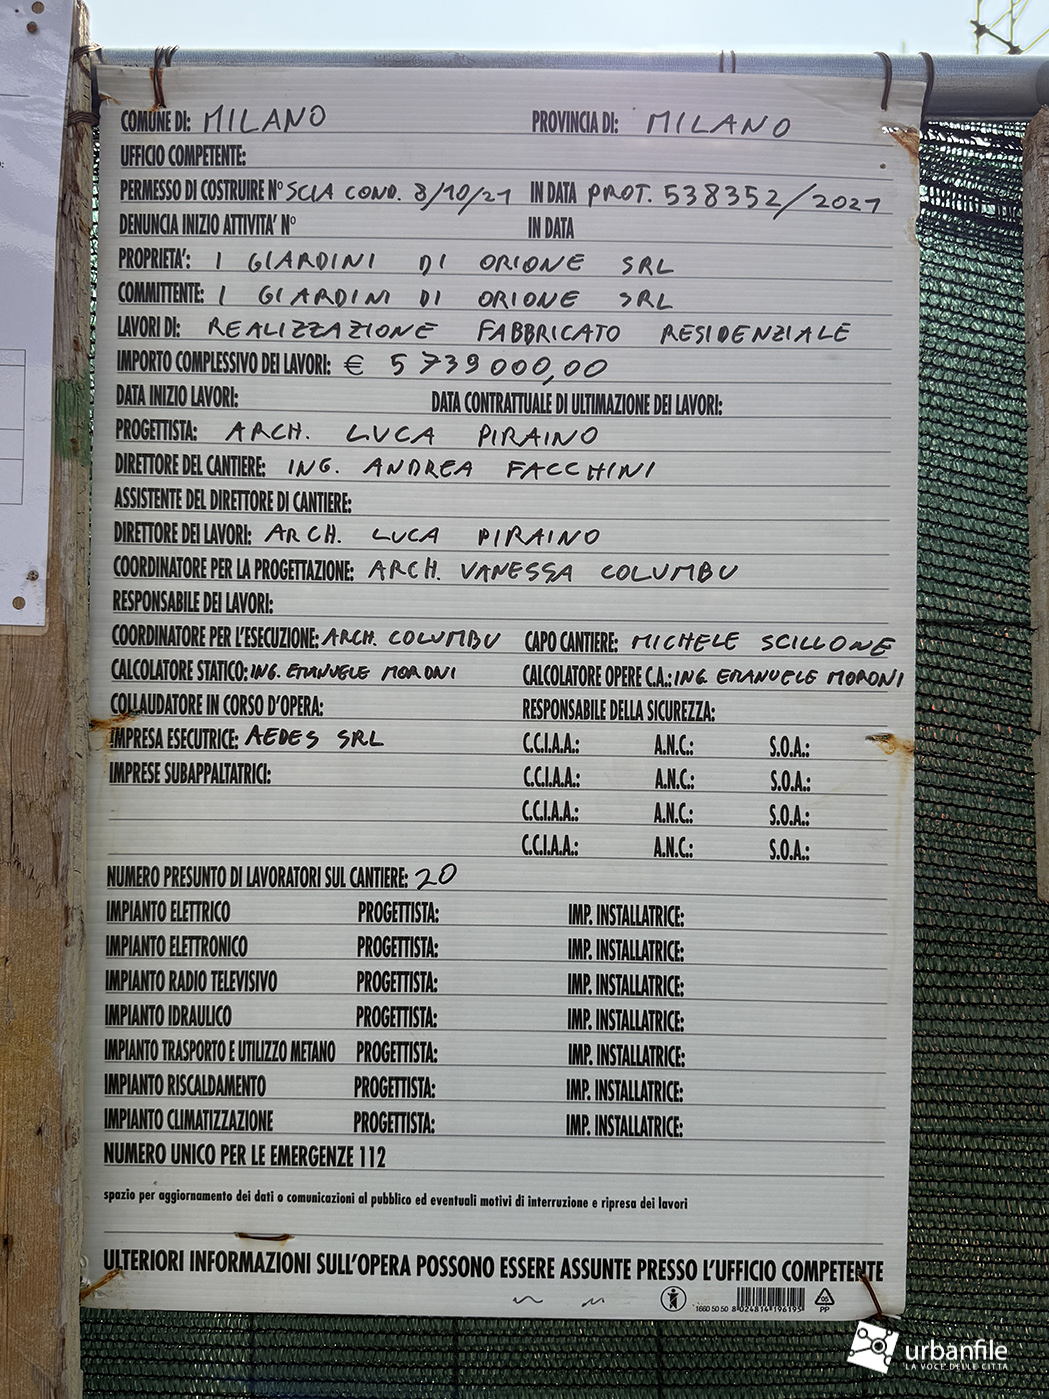 COMUNE DI: MILANO PROVINCIA DI: MILANO
UFFICIO COMPETENTE:
PERMESSO DI COSTRUIRE N° SCIA COND. 8/10/21 IN DATA PROT. 538352/2021
DENUNCIA INIZIO ATTIVITA' N° IN DATA
PROPRIETA': I GIARDINI DI ORIONE SRL
COMMITTENTE: I GIARDINI DI ORIONE SRL
LAVORI DI: REALIZZAZIONE FABBRICATO RESIDENZIALE
IMPORTO COMPLESSIVO DEI LAVORI: € 5739000,00
DATA INIZIO LAVORI: DATA CONTRATTUALE DI ULTIMAZIONE DEI LAVORI:
PROGETTISTA: ARCH. LUCA PIRAINO
DIRETTORE DEL CANTIERE: ING. ANDREA FACCHINI
ASSISTENTE DEL DIRETTORE DI CANTIERE:
DIRETTORE DEI LAVORI: ARCH. LUCA PIRAINO
COORDINATORE PER LA PROGETTAZIONE: ARCH. VANESSA COLUMBU
RESPONSABILE DEI LAVORI:
COORDINATORE PER L'ESECUZIONE: ARCH. COLUMBU CAPO CANTIERE: MICHELE SCILLONE
CALCOLATORE STATICO: ING. EMANUELE MORONI CALCOLATORE OPERE C.A.: ING. EMANUELE MORONI
COLLAUDATORE IN CORSO D'OPERA: RESPONSABILE DELLA SICUREZZA:
IMPRESA ESECUTRICE: AEDES SRL C.C.I.A.A.: A.N.C.: S.O.A.:
IMPRESE SUBAPPALTATRICI: C.C.I.A.A.: A.N.C.: S.O.A.:
C.C.I.A.A.: A.N.C.: S.O.A.:
C.C.I.A.A.: A.N.C.: S.O.A.:
NUMERO PRESUNTO DI LAVORATORI SUL CANTIERE: 20
IMPIANTO ELETTRICO PROGETTISTA: IMP. INSTALLATRICE:
IMPIANTO ELETTRONICO PROGETTISTA: IMP. INSTALLATRICE:
IMPIANTO RADIO TELEVISIVO PROGETTISTA: IMP. INSTALLATRICE:
IMPIANTO IDRAULICO PROGETTISTA: IMP. INSTALLATRICE:
IMPIANTO TRASPORTO E UTILIZZO METANO PROGETTISTA: IMP. INSTALLATRICE:
IMPIANTO RISCALDAMENTO PROGETTISTA: IMP. INSTALLATRICE:
IMPIANTO CLIMATIZZAZIONE PROGETTISTA: IMP. INSTALLATRICE:
NUMERO UNICO PER LE EMERGENZE 112
spazio per aggiornamento dei dati o comunicazioni al pubblico ed eventuali motivi di interruzione e ripresa dei lavori
ULTERIORI INFORMAZIONI SULL'OPERA POSSONO ESSERE ASSUNTE PRESSO L'UFFICIO COMPETENTE
1660 50 50 8 024814 196195 05
PP
urbanfile
LA VOCE DELLE CITTÀ